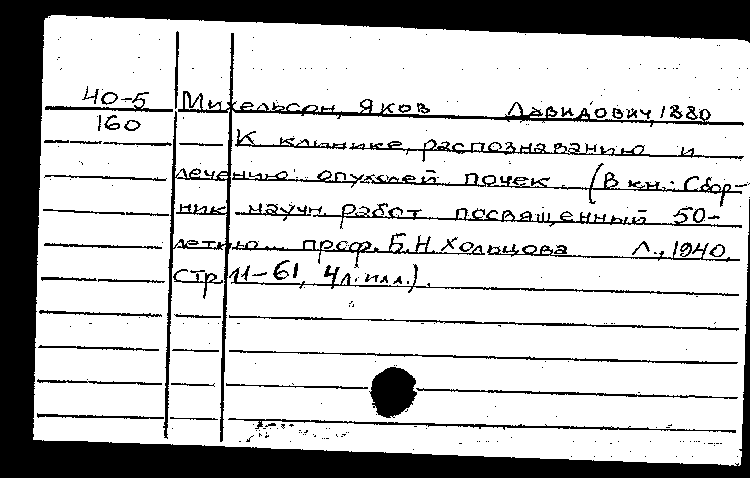 40-5 Михельсон, Яков Давидович, 1880
160 К клинике, распознаванию и
лечению опухолей почек. (В кн.: Сбор-
ник научн. работ посвященный 50-
летию проф. Б.Н. Хольцова Л., 1940,
стр. 11-61, 4 л. илл.).